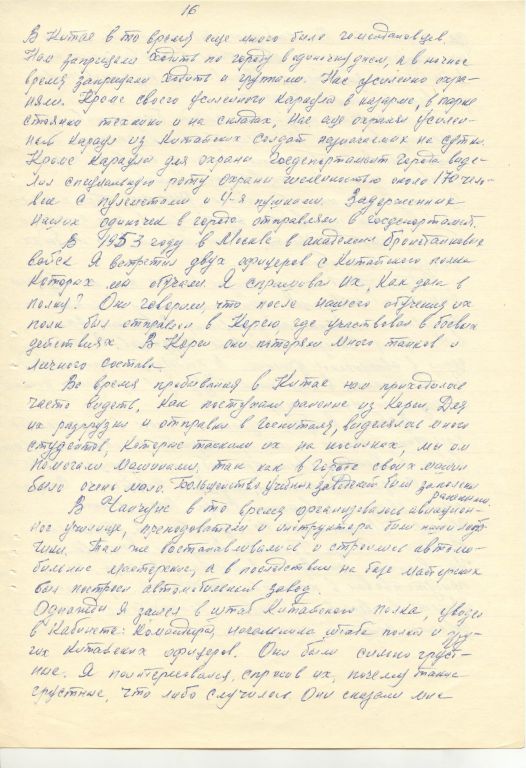 16
В Китае в то время еще много было гоминдановцев.
Нам запрещали ходить по городу в одиночку днем, а в ночное
время запрещали ходить и группами. Нас усиленно охра-
няли. Кроме своего усиленного караула в казарме, в парке
стоянки техники и на складах, нас еще охранял усилен-
ный караул из Китайских солдат назначаемых на сутки.
Кроме караула для охраны Госдепортамент города выде-
лил специальную роту охраны численностью около 170 чело-
век с пулеметами и 4-я пушками. Задержанных
наших одиночек в городе отправляли в госдепортамент.
В 1953 году в Москве в академии бронетанковых
войск Я встретил двух офицеров с Китайского полка
которых мы обучали. Я спрашивал их, как дела в
полку? Они говорили, что после нашего обучения их
полк был отправлен в Корею, где участвовал в боевых
действиях. В Корее они потеряли много танков и
личного состава.
Во время пребывания в Китае нам приходилось
часто видеть, как поступали раненые из Кореи. Для
их разгрузки и отправки в госпиталя, выделялось много
студентов, которые таскали их на носилках, мы им
помогали машинами, так как в городе своих машин
было очень мало. Большинство учебных заведений были заполнены
ранеными
В Чанчуне в то время организовалось авиацион-
ное училище, преподователи и инструктора были наши лёт-
чики. Там же востанавливались и строились автомо-
бильные мастерские, а в последствии на базе мастерских
был построен автомобильный завод.
Однажды Я зашел в штаб Китайского полка, увидел
в кабинете: командира, начальника штаба полка и дру-
гих Китайских офицеров. Они были сильно груст-
ные. Я поинтересовался, спросив их, почему такие
грустные, что либо случилось Они сказали мне